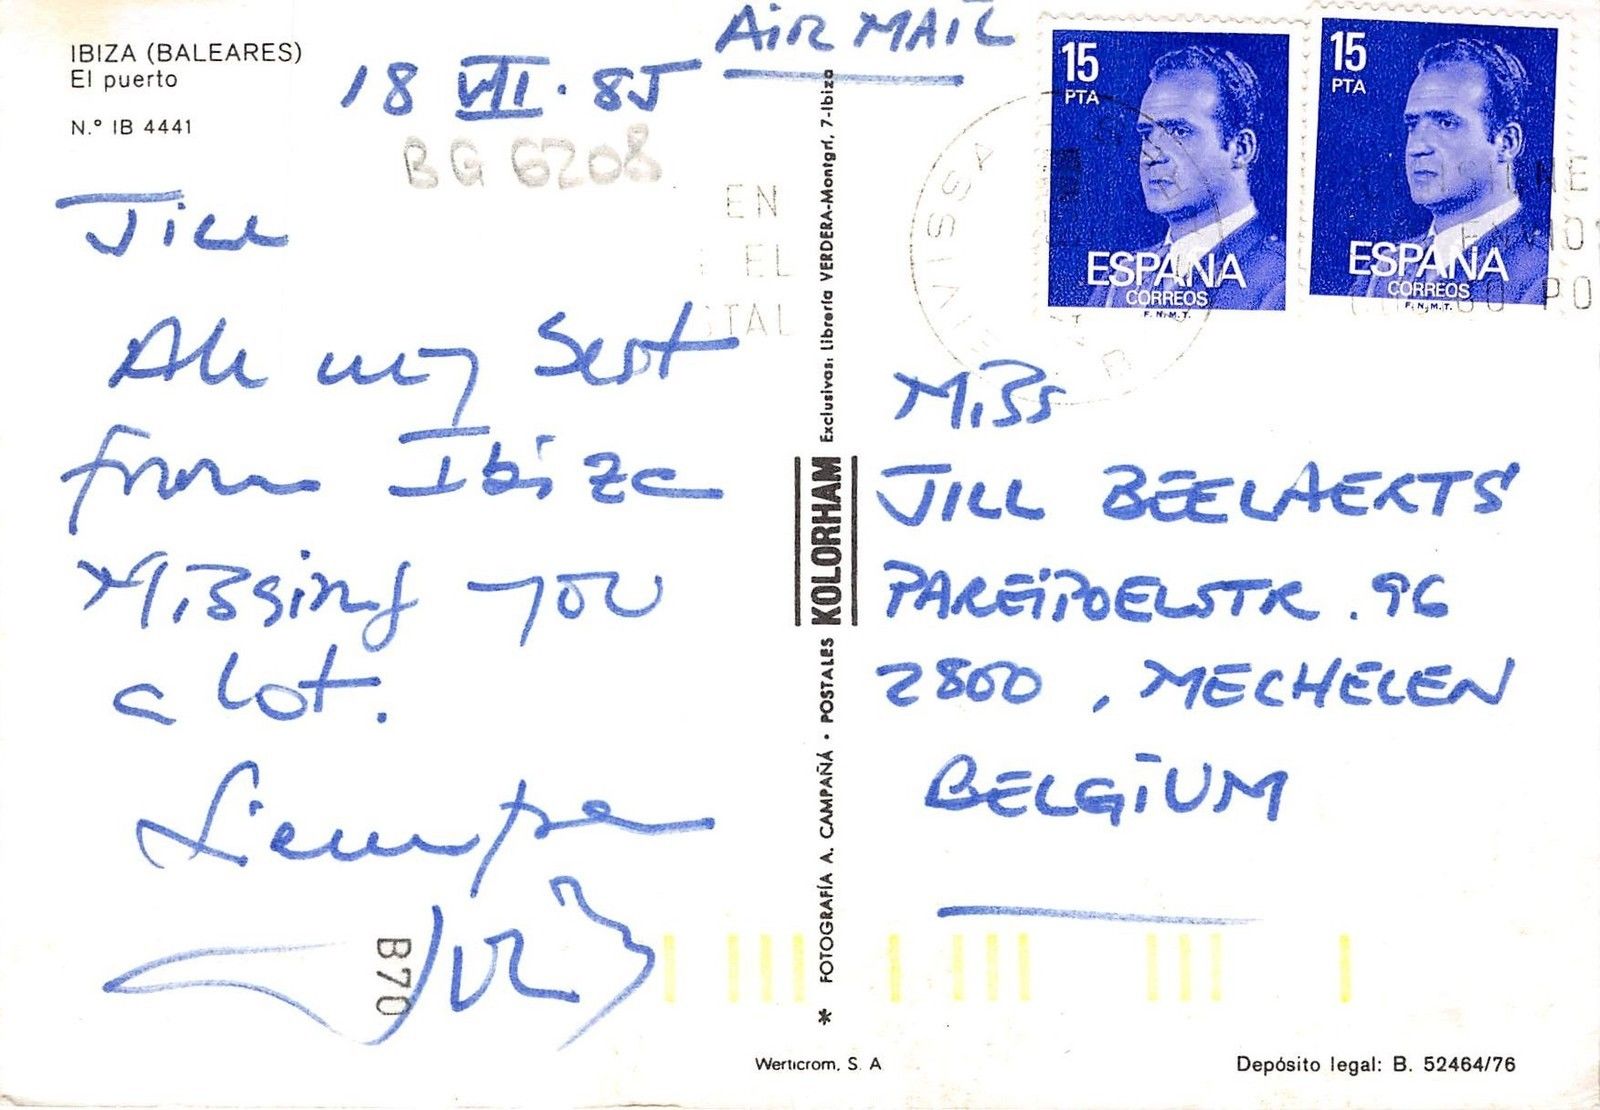 IBIZA (BALEARES)
El puerto
N.º IB 4441
18 VII · 85
AiR MAiL
BG 6208
Jill
All my best
from Ibiza
Missing you
a lot.
Siempre
B70
15
PTA
ESPAÑA
CORREOS
F.N.M.T.
15
PTA
ESPAÑA
CORREOS
F.N.M.T.
EN
EL
STAL
EIVISSA
* FOTOGRAFÍA A. CAMPAÑÁ · POSTALES KOLORHAM Exclusivas: Librería VERDERA-Montgrí, 7-Ibiza
Miss
JILL BEELAERTS
PAREIPOELSTR. 96
2800, MECHELEN
BELGiUM
Werticrom, S. A
Depósito legal: B. 52464/76